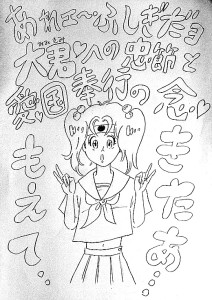 あれェ〜ふしぎだョ
大君♡への忠節と
愛国奉行の念♡
きたぁ…
もえて…